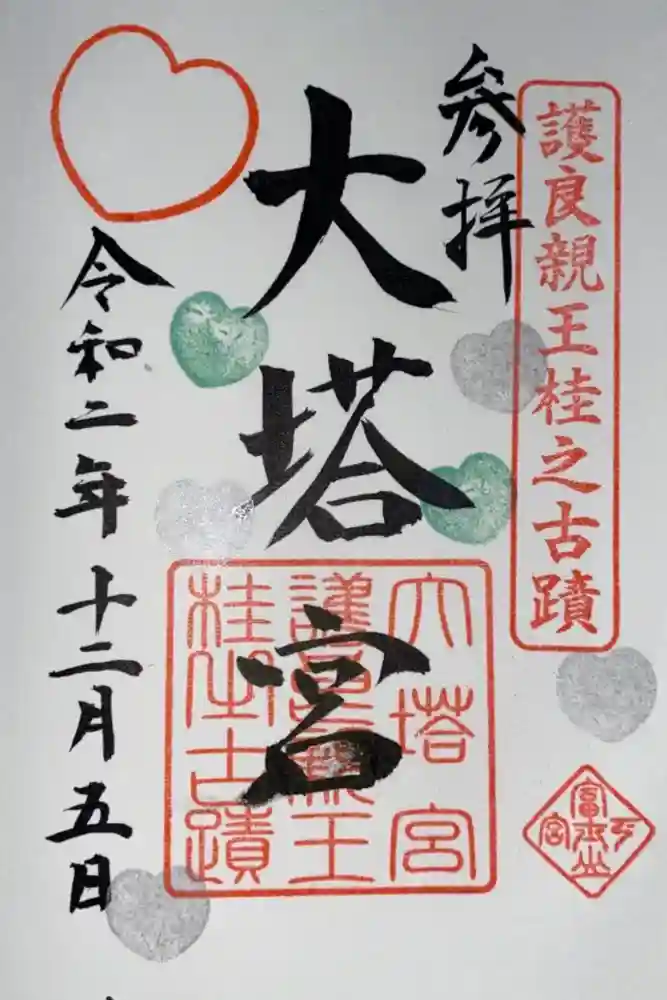 護良親王桂之古蹟
参拝
大塔宮
大塔宮
護良親王
桂之古蹟
富士山
下宮
令和二年十二月五日